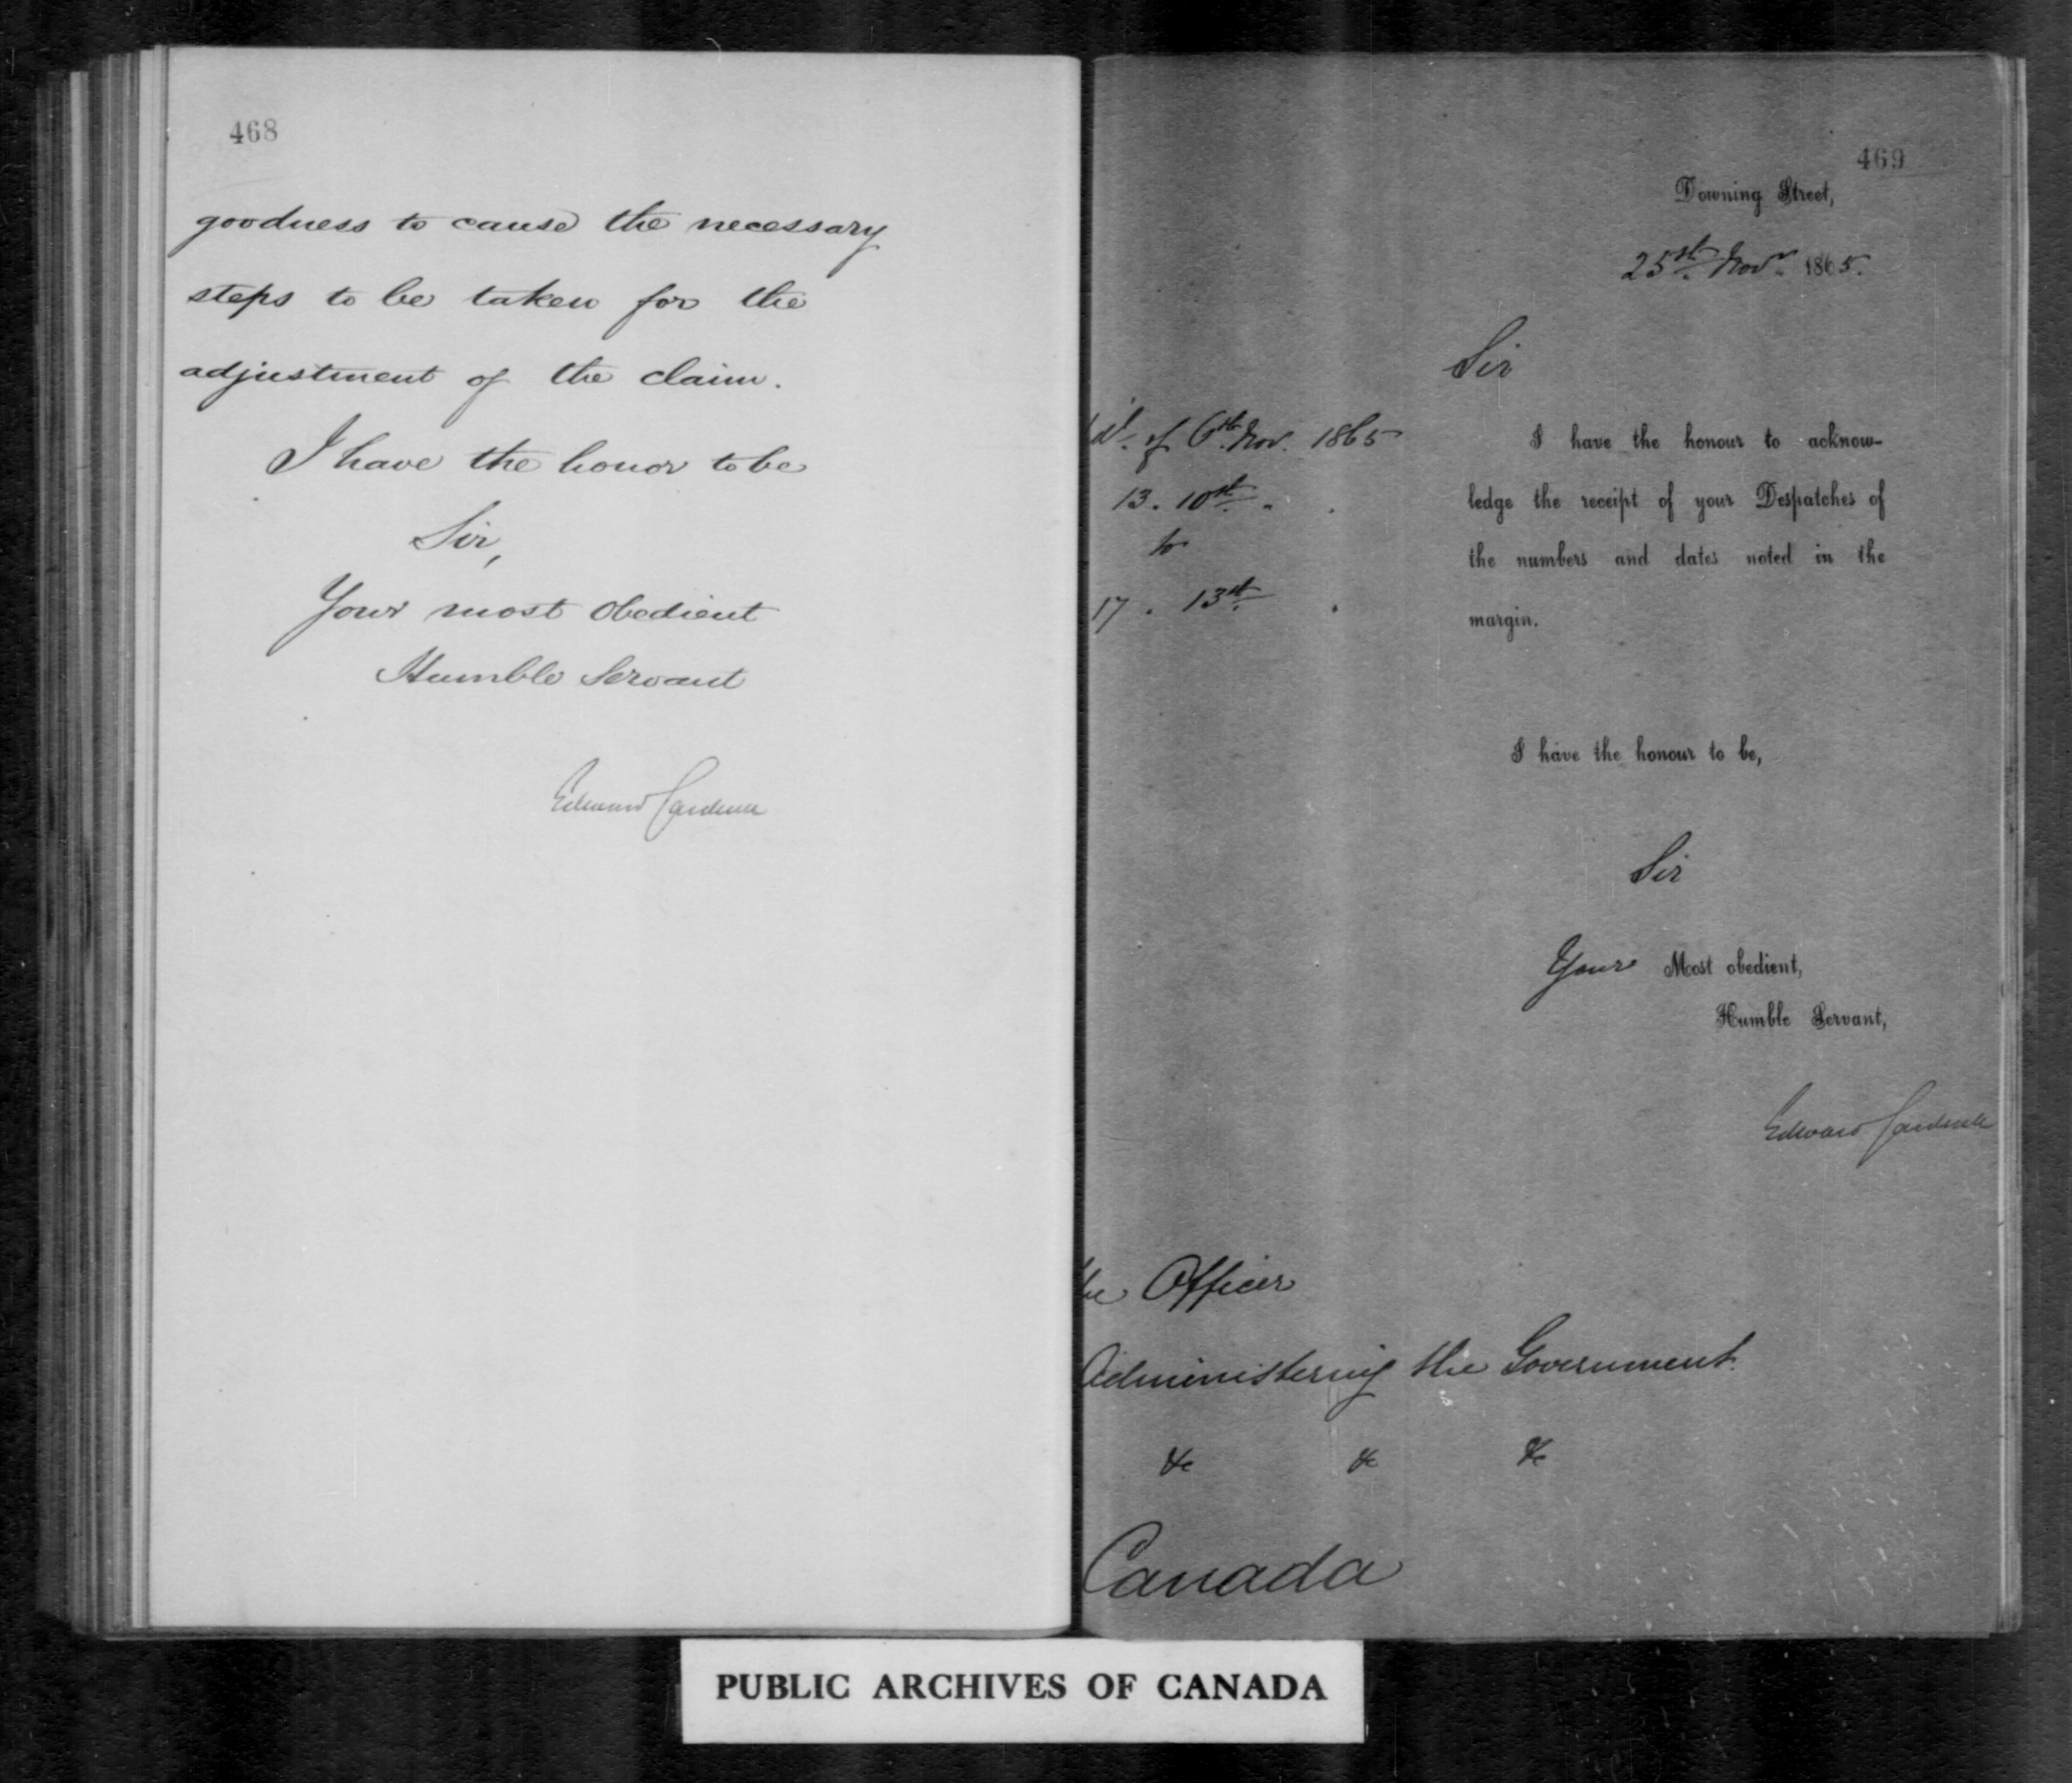 468
goodness to cause the necessary
steps to be taken for the
adjustment of the claim.
I have the honor to be
Sir,
Your most obedient
Humble Servant
Edward Cardwell
469
Downing Street,
25st Novr. 1865.
Sir
of 6th Nov. 1865
13. 10st "
to
17. 13st
I have the honour to acknow-
ledge the receipt of your Despatches of
the numbers and dates noted in the
margin.
I have the honour to be,
Sir
Your Most obedient,
Humble Servant,
Edward Cardwell
he Officer
Administering the Government.
&c &c &c
Canada
PUBLIC ARCHIVES OF CANADA